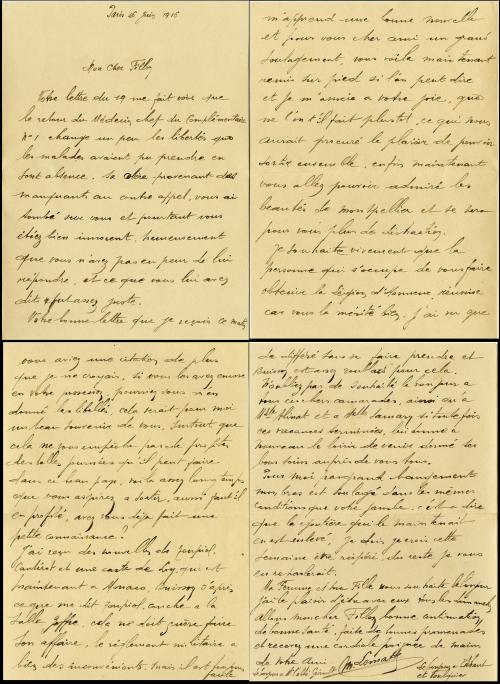 Paris 26 juin 1916
Mon Cher Folley
Votre lettre du 19 me fait voir que
le retour du Médecin chef du Complémentaire
N° 1 change un peu les libertés que
les malades avaient pu prendre en
son absence. Sa colère provenant des
manquants au contre appel, vous ai
tombé sur vous et pourtant vous
étiez bien innocent, heureusement
que vous n'avez pas eu peur de lui
répondre, et ce que vous lui avez
dit fut assez juste.
Votre bonne lettre que je reçois ce matin
m'apprend une bonne nouvelle
et pour vous cher ami un grand
soulagement, vous voilà maintenant
remis sur pied si l'on peut dire
et je m'associe a votre joie, que
ne l'on t'il fait plustôt, ce qui nous
aurait procuré le plaisir de pouvoir
sortir ensemble, enfin maintenant
vous allez pouvoir admiré les
beautés de Montpellier et ce sera
pour vous plus de distraction.
Je souhaite vivement que la
personne qui s'occupe de vous faire
obtenir la Légion d'honneur réussisse
car vous la mérité bien. J'ai vu que
vous aviez une citation de plus
que je ne croyais, si vous les avez encore
en votre possession, pourriez vous m'en
donné les libellés, cela serait pour moi
un beau souvenir de vous. Surtout que
cela ne vous empêche pas de profiter
des belles journées qu'il peut faire
dans ce beau pays, voilà assez longtemps
que vous aspirez a sortir, aussi faut il
en profité, avez vous déjà fait une
petite connaissance.
J'ai reçu des nouvelles de
et une carte de qui est
maintenant a Monaco, Buisson d'après
ce que me dit caché a la
salle Joffre, cela ne doit guère faire
son affaire, le règlement militaire a
bien des inconvénients, mais il est parfois
facile
de différé sans se faire prendre et
Buisson est assez roublard pour cela.
N'oubliez pas de souhaité le bonjour a
tous ces chers camarades, ainsi qu'a
Mlle et a Mlle si toutefois
ces vacances terminées, lui donne a
nouveau le loisir de venir donné ses
bons soins auprès de vous tous.
Pour moi, pas grand changement
mon bras est soulagé dans les mêmes
conditions que votre jambe, c'est a dire
que la gouttière qui le maintenait
en est enlevé, je dois, je crois cette
semaine être réopéré, du reste je vous
en reparlerai.
Ma Femme et ma Fille vous souhaite le bonjour
j'ai le plaisir d'être avec eux tous les dimanches,
Allons mon cher Folley bonne continuation
de bonne santé, faite de bonnes promenades
et recevez une cordiale poignée de mains
de votre Ami
Le bonjour a
et